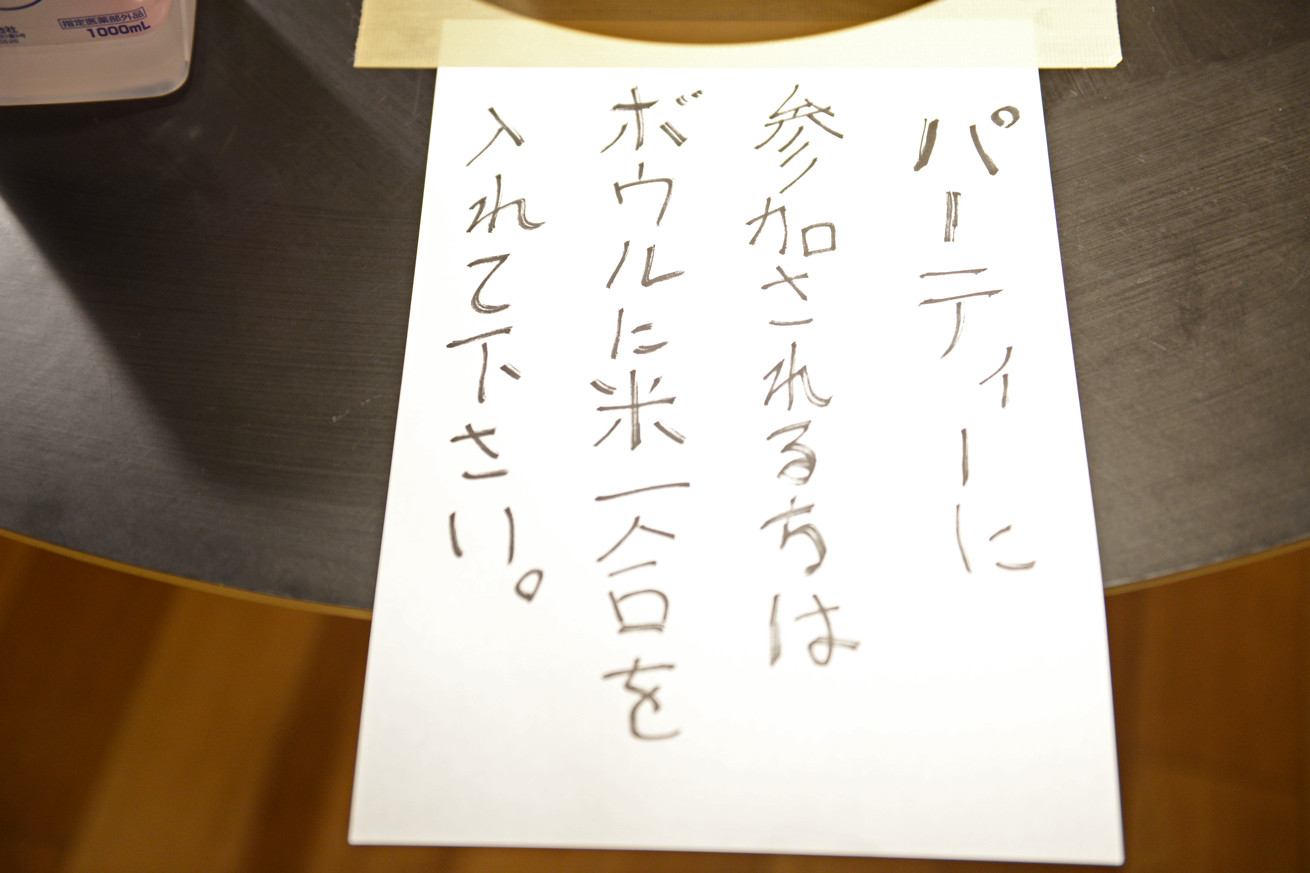 パーティーに
参加される方は
ボウルに米一合を
入れて下さい。
指定医薬部外品
1000mL